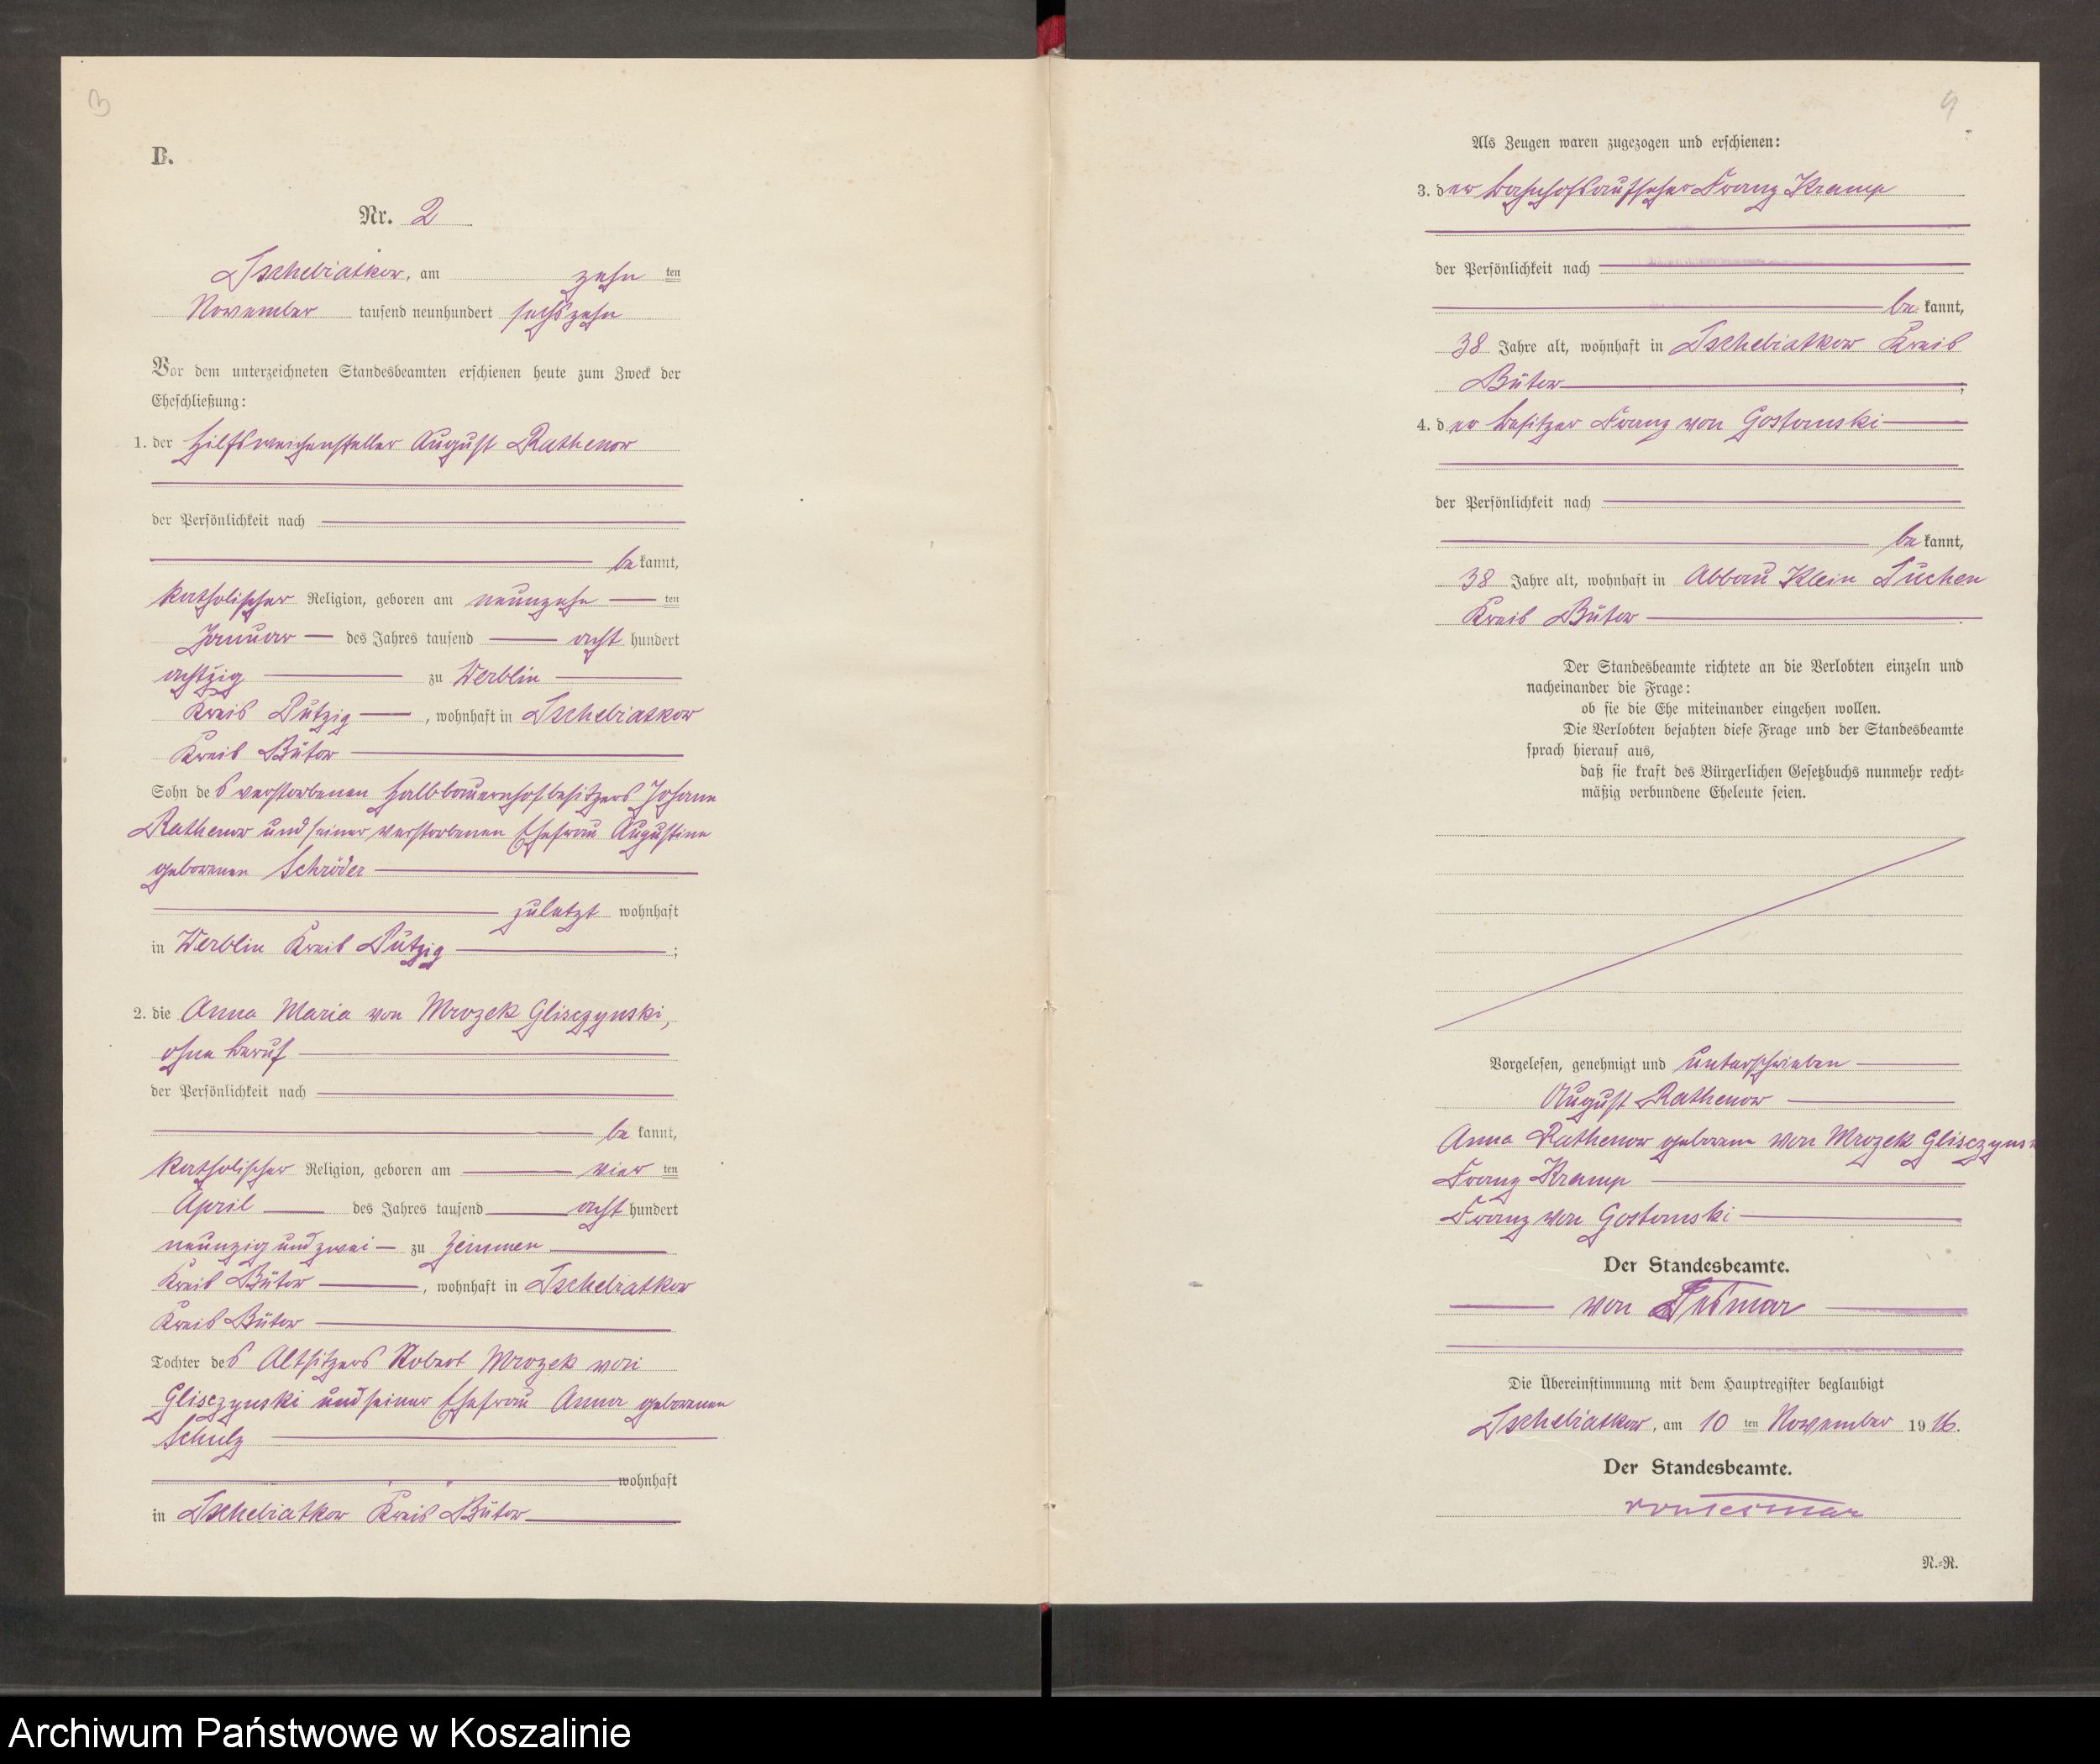 3
B.
Nr. 2
Tschebiatkow, am zehn ten
November tausend neunhundert sechszehn
Vor dem unterzeichneten Standesbeamten erschienen heute zum Zweck der
Eheschließung:
1. der Hilfsweichensteller August Rathenow
der Persönlichkeit nach
be kannt,
katholischer Religion, geboren am neunzehn ten
Januar des Jahres tausend acht hundert
achtzig zu Werblin
Kreis Putzig, wohnhaft in Tschebiatkow
Kreis Bütow
Sohn des verstorbenen Halbbauernhofbesitzers Johann
Rathenow und seiner verstorbenen Ehefrau Augustine
geborenen Schröder
zuletzt wohnhaft
in Werblin Kreis Putzig ;
2. die Anna Maria von Mrozek Glisczynski,
ohne Beruf
der Persönlichkeit nach
be kannt,
katholischer Religion, geboren am vier ten
April des Jahres tausend acht hundert
neunzig und zwei zu Zemmen
Kreis Bütow, wohnhaft in Tschebiatkow
Kreis Bütow
Tochter des Altsitzers Robert Mrozek von
Glisczynski und seiner Ehefrau Anna geborenen
Schulz
wohnhaft
in Tschebiatkow Kreis Bütow
4
Als Zeugen waren zugezogen und erschienen:
3. der Bahnhofsaufseher Franz Kramp
der Persönlichkeit nach
be kannt,
38 Jahre alt, wohnhaft in Tschebiatkow Kreis
Bütow ;
4. der Besitzer Franz von Gostomski
der Persönlichkeit nach
be kannt,
38 Jahre alt, wohnhaft in Abbau Klein Tuchen
Kreis Bütow .
Der Standesbeamte richtete an die Verlobten einzeln und
nacheinander die Frage:
ob sie die Ehe miteinander eingehen wollen.
Die Verlobten bejahten diese Frage und der Standesbeamte
sprach hierauf aus,
daß sie kraft des Bürgerlichen Gesetzbuchs nunmehr recht-
mäßig verbundene Eheleute seien.
Vorgelesen, genehmigt und unterschrieben
August Rathenow
Anna Rathenow geborene von Mrozek Glisczynski
Franz Kramp
Franz von Gostomski
Der Standesbeamte.
von Tesmar
Die Übereinstimmung mit dem Hauptregister beglaubigt
Tschebiatkow, am 10 ten November 19 16.
Der Standesbeamte.
von Tesmar
N.-R.
Archiwum Państwowe w Koszalinie